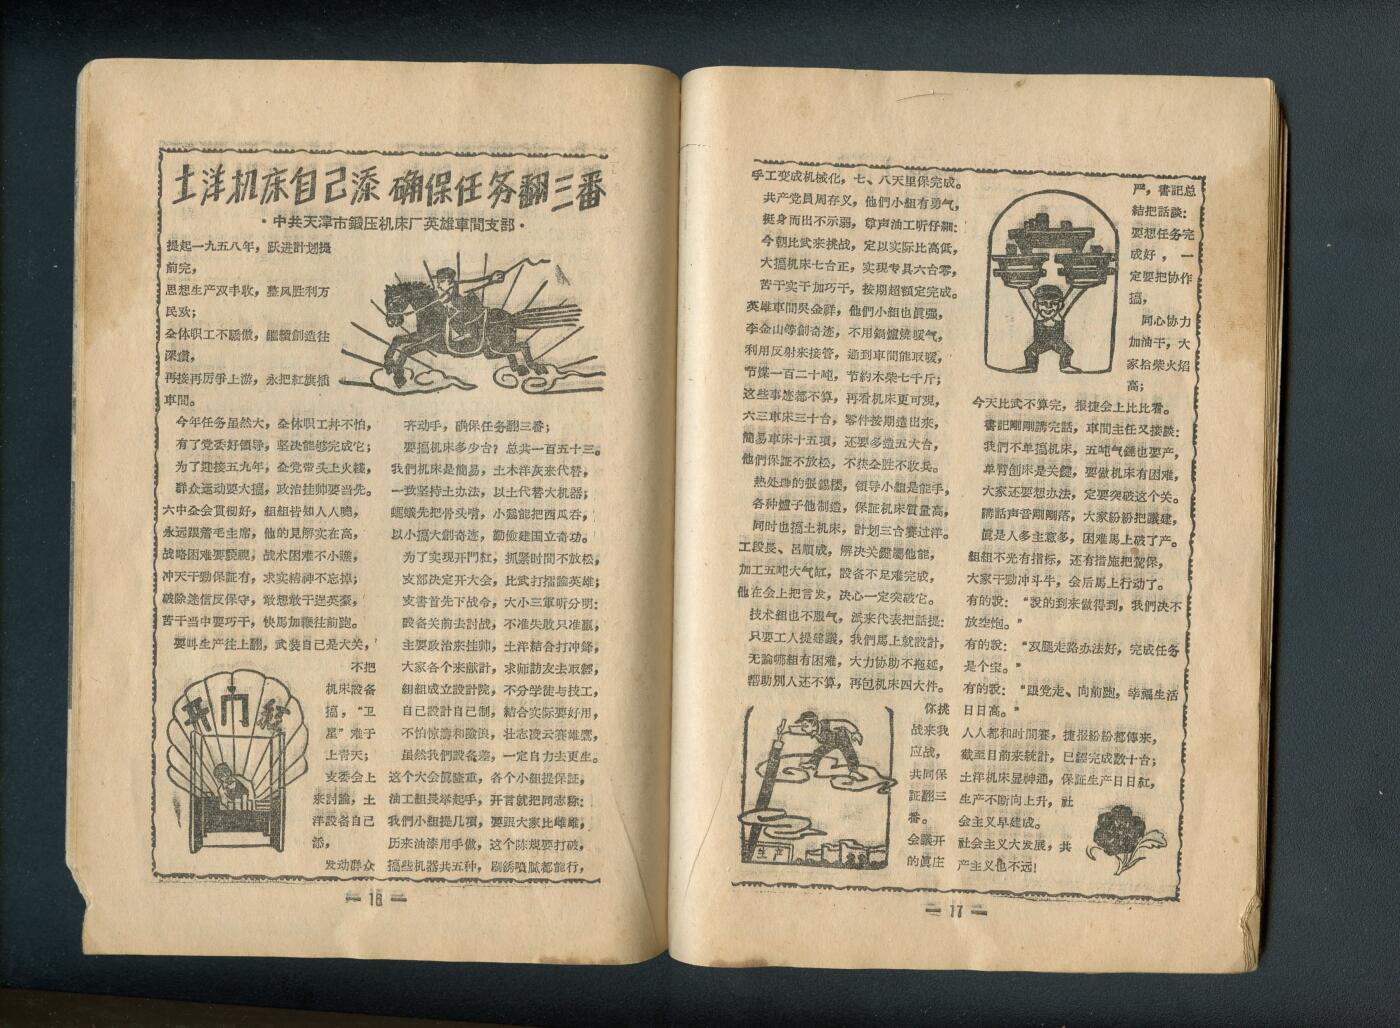 土洋机床自己添 确保任务翻三番
·中共天津市鍛压机床厂英雄車間支部·
提起一九五八年，跃进計划提
前完，
思想生产双丰收，整风胜利万
民欢；
全体职工不驕傲，繼續創造往
深鑽，
再接再厉爭上游，永把紅旗插
車間。
今年任务虽然大，全体职工并不怕，
有了党委好領导，坚决能够完成它；
为了迎接五九年，全党带头上火綫，
群众运动要大搞，政治挂帅要当先。
六中全会貫彻好，組組皆知人人曉，
永远跟着毛主席，他的見解实在高，
战略困难要藐視，战术困难不小瞧，
冲天干勁保証有，求实精神不忘掉；
破除迷信反保守，敢想敢干逞英豪，
苦干当中要巧干，快馬加鞭往前跑。
要叫生产往上翻，武装自己是大关，
不把
机床設备
搞，“卫
星”难于
上青天；
支委会上
来討論，土
洋設备自己
添，
发动群众
开门紅
齐动手，确保任务翻三番；
要搞机床多少台？总共一百五十三。
我們机床是簡易，土木洋灰来代替，
一致坚持土办法，以土代替大机器；
螞蟻先把骨头啃，小鷄能把西瓜吞，
以小搞大創奇迹，勤儉建国立奇功。
为了实现开門紅，抓紧时間不放松，
支部决定开大会，比武打擂論英雄；
支書首先下战令，大小三軍听分明：
設备关前去討战，不准失敗只准贏，
主要政治来挂帅，土洋結合打冲鋒，
大家各个来献計，求师訪友去取經，
組組成立設計院，不分学徒与技工，
自己設計自己制，結合实际要好用，
不怕惊濤和險浪，壮志凌云賽雄鷹，
虽然我們設备差，一定自力去更生。
这个大会眞隆重，各个小組提保証，
油工組長举起手，开言就把同志称：
我們小組提几項，要跟大家比雌雄，
历来油漆用手做，这个陈規要打破，
搞些机器共五种，刷銹噴膩都能行，
— 16 —
手工变成机械化，七、八天里保完成。
共产党員周存义，他們小組有勇气，
挺身而出不示弱，尊声油工听仔細：
今朝比武来挑战，定以实际比高低，
大搞机床七台正，实现专具六台零，
苦干实干加巧干，按期超額定完成。
英雄車間吳金祥，他們小組也眞强，
李金山等創奇迹，不用鍋爐燒暖气，
利用反射来接管，通到車間能取暖，
节煤一百二十吨，节約木柴七千斤；
这些事迹都不算，再看机床更可观，
六三車床三十台，零件按期造出来，
簡易車床十五項，还要多造五大台，
他們保証不放松，不获全胜不收兵。
热处理的張錫楼，領导小組是能手，
各种爐子他制造，保証机床質量高，
同时也搞土机床，計划三台賽过洋。
工段長、呂順成，解决关鍵屬他能，
加工五吨大气缸，設备不足难完成，
他在会上把言发，决心一定突破它。
技术組也不服气，派来代表把話提：
只要工人提建議，我們馬上就設計，
无論哪組有困难，大力协助不拖延，
帮助別人还不算，再包机床四大件。
你挑
战来我
应战，
共同保
証翻三
番。
会議开
的眞庄
生产
严，書記总
結把話談：
要想任务完
成好，一
定要把协作
搞，
同心协力
加油干，大
家拾柴火焰
高；
今天比武不算完，报捷会上比比看。
書記剛剛講完話，車間主任又接談：
我們不单搞机床，五吨气錘也要产，
单臂刨床是关鍵，要做机床有困难，
大家还要想办法，定要突破这个关。
講話声音剛剛落，大家紛紛把議建，
眞是人多主意多，困难馬上破了产。
組組不光有指标，还有措施把駕保，
大家干勁冲斗牛，会后馬上行动了。
有的說：“說的到来做得到，我們决不
放空炮。”
有的說：“双腿走路办法好，完成任务
是个宝。”
有的說：“跟党走、向前跑，幸福生活
日日高。”
人人都和时間賽，捷报紛紛都傳来，
截至目前来統計，已經完成数十台；
土洋机床显神通，保証生产日日紅，
生产不断向上升，社
会主义早建成。
社会主义大发展，共
产主义也不远！
— 17 —